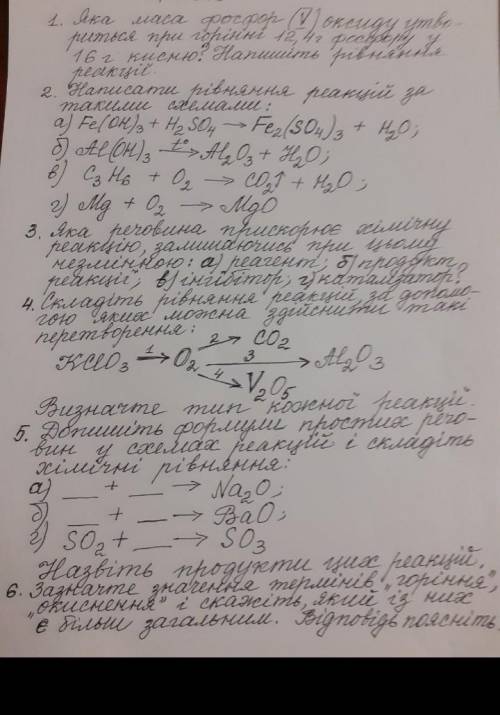 1. Яка маса фосфор (V) оксиду утво-
риться при горінні 12,4г фосфору у
16 г кисню? Напишіть рівняння
реакції.
2. Написати рівняння реакцій за
такими схемами:
а) Fe(OH)₃ + H₂SO₄ → Fe₂(SO₄)₃ + H₂O;
б) Al(OH)₃ t°→ Al₂O₃ + H₂O;
в) C₃H₆ + O₂ → CO₂↑ + H₂O;
г) Mg + O₂ → MgO
3. Яка речовина прискорює хімічну
реакцію, залишаючись при цьому
незмінною: а) реагент; б) продукт
реакції; в) інгібітор; г) каталізатор?
4. Складіть рівняння реакцій, за допомо-
гою яких можна здійснити такі
перетворення:
2→ CO₂
KClO₃ 1→ O₂ 3→ Al₂O₃
4→ V₂O₅
Визначте тип кожної реакції.
5. Допишіть формули простих речо-
вин у схемах реакцій і складіть
хімічні рівняння:
а) __ + __ → Na₂O;
б) __ + __ → BaO;
г) SO₂ + __ → SO₃
Назвіть продукти цих реакцій.
6. Зазначте значення термінів „горіння",
„окиснення" і скажіть, який із них
є більш загальним. Відповідь поясніть.